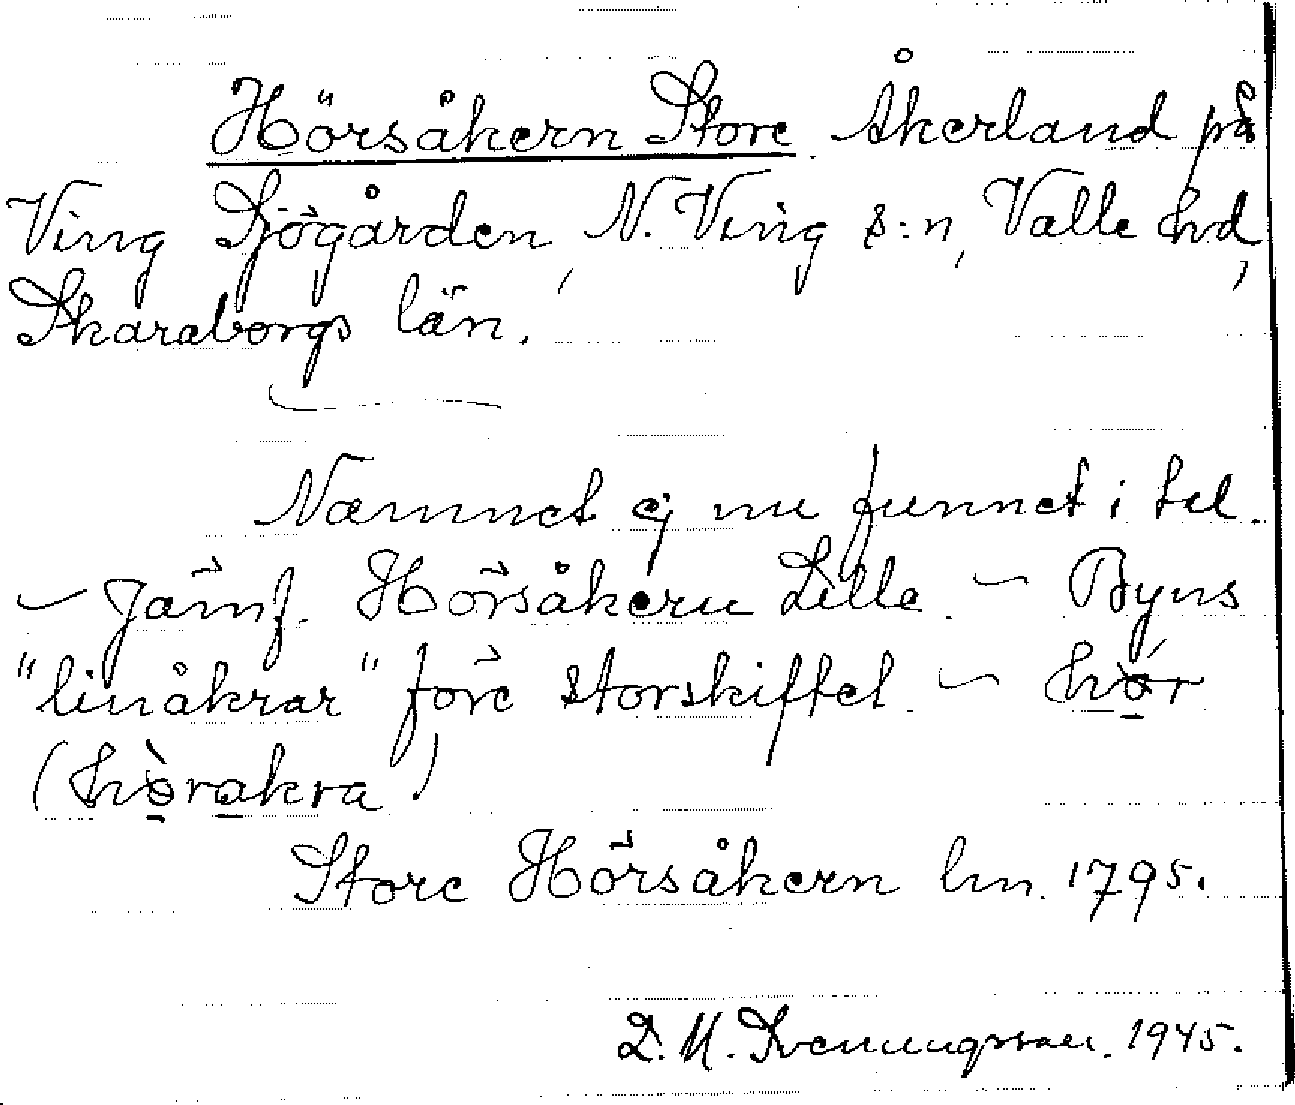 Hörsåkern Store. Åkerland på
Ving Sjögården, N. Ving s:n, Valle hd,
Skaraborgs län.
Namnet ej nu funnet i tal.
– Jämf. Hörsåkern Lille. – Byns
"linåkrar" före storskiftet. – hör
(hörakra)
Store Hörsåkern hn. 1795.
D. M. Svenungsson. 1945.